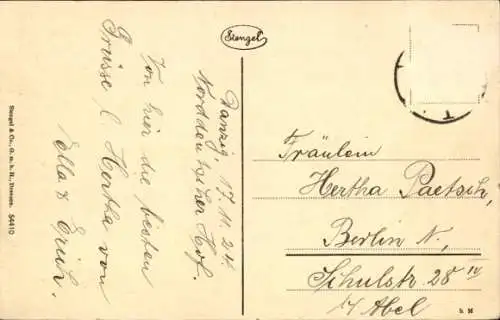 Stengel
Danzig, 17.11.24.
Norddeutscher Hof.
Von hier die besten
Grüsse l. Hertha von
Ella & Erich.
Fräulein
Hertha Paetsch,
Berlin N,
Schulstr 28 IV
b/ Abel
Stengel & Co., G. m. b. H., Dresden. 54410
T